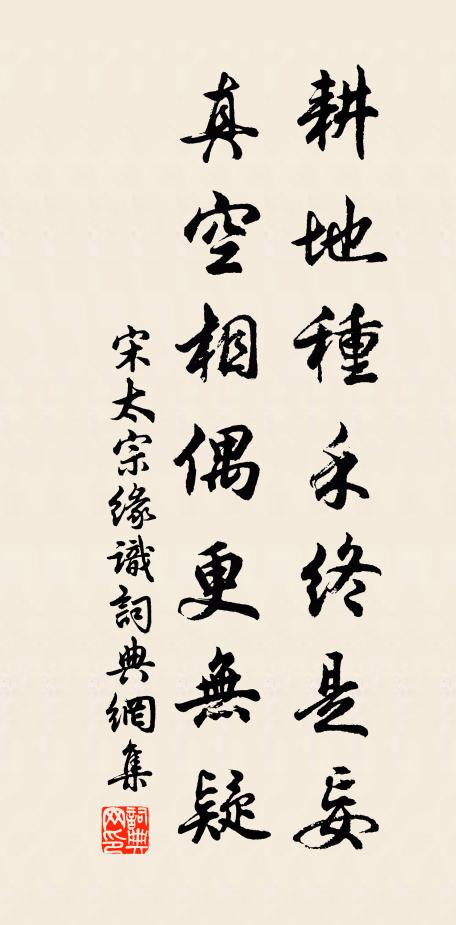 耕地種禾終是妄
真空相偶更無疑
宋太宗緣識詞典網集
詞典网印